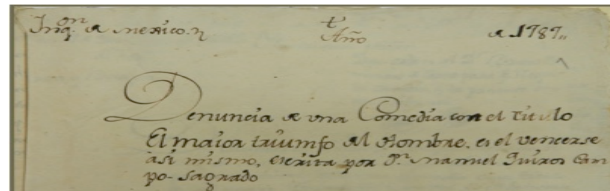 Inq.on de Mexico. Año de 1787,,
Denuncia de una Comedia con el titulo
El maior triumfo del Hombre, es el vencerse
asi mismo, escrita por Dn. Manuel Quiros Cam
po-Sagrado